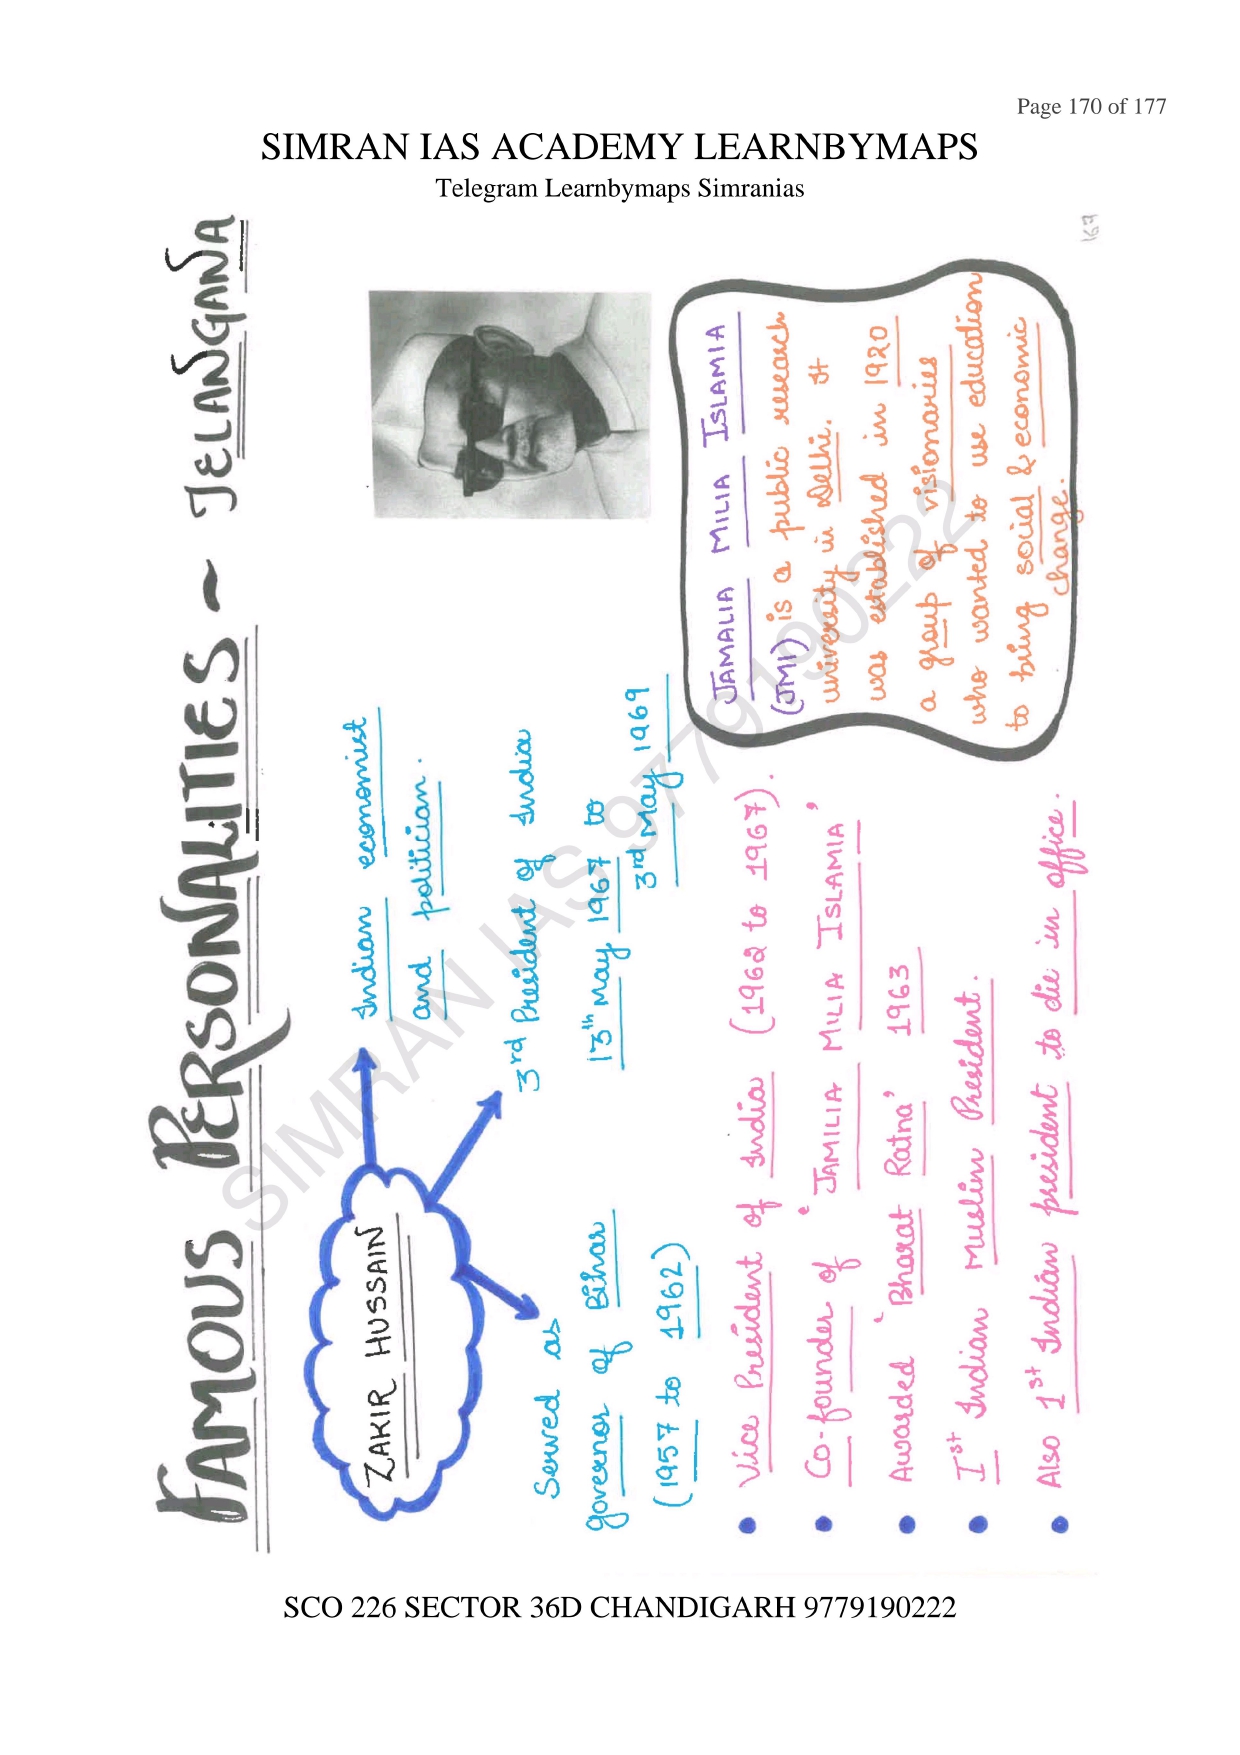 Page 170 of 177
SIMRAN IAS ACADEMY LEARNBYMAPS
Telegram Learnbymaps Simranias
FAMOUS PERSONALITIES - TELANGANA
ZAKIR HUSSAIN
Indian economist
and politician.
3rd President of India
13th May 1967 to
3rd May 1969
Served as
governor of Bihar
(1957 to 1962)
• Vice President of India (1962 to 1967).
• Co-founder of 'JAMILIA MILIA ISLAMIA'
• Awarded 'Bharat Ratna' 1963
• Ist Indian Muslim President.
• Also 1st Indian president to die in office.
JAMALIA MILIA ISLAMIA
(JMI) is a public research
university in Delhi. It
was established in 1920
a group of visionaries
who wanted to use education
to bring social & economic
change.
167
SIMRAN IAS 9779190222
SCO 226 SECTOR 36D CHANDIGARH 9779190222